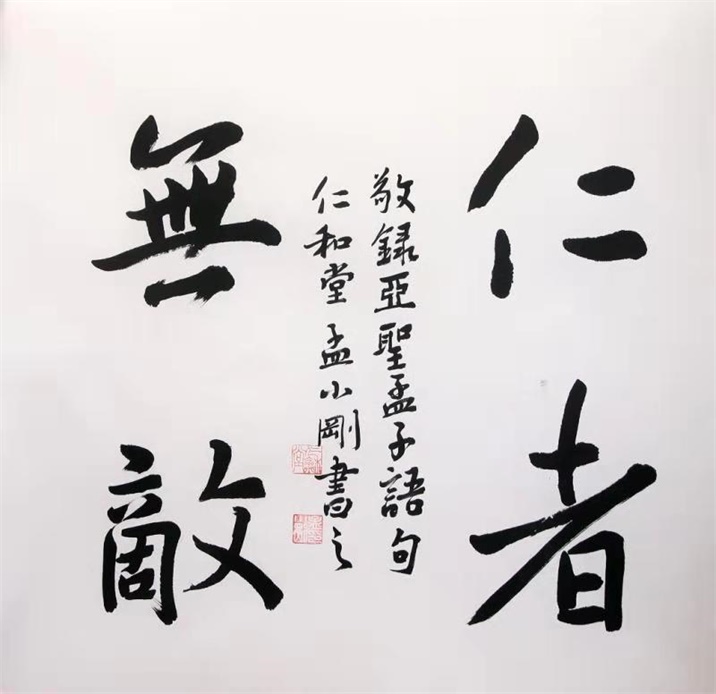 仁者
無敵
敬録亞聖孟子語句
仁和堂孟小剛書之